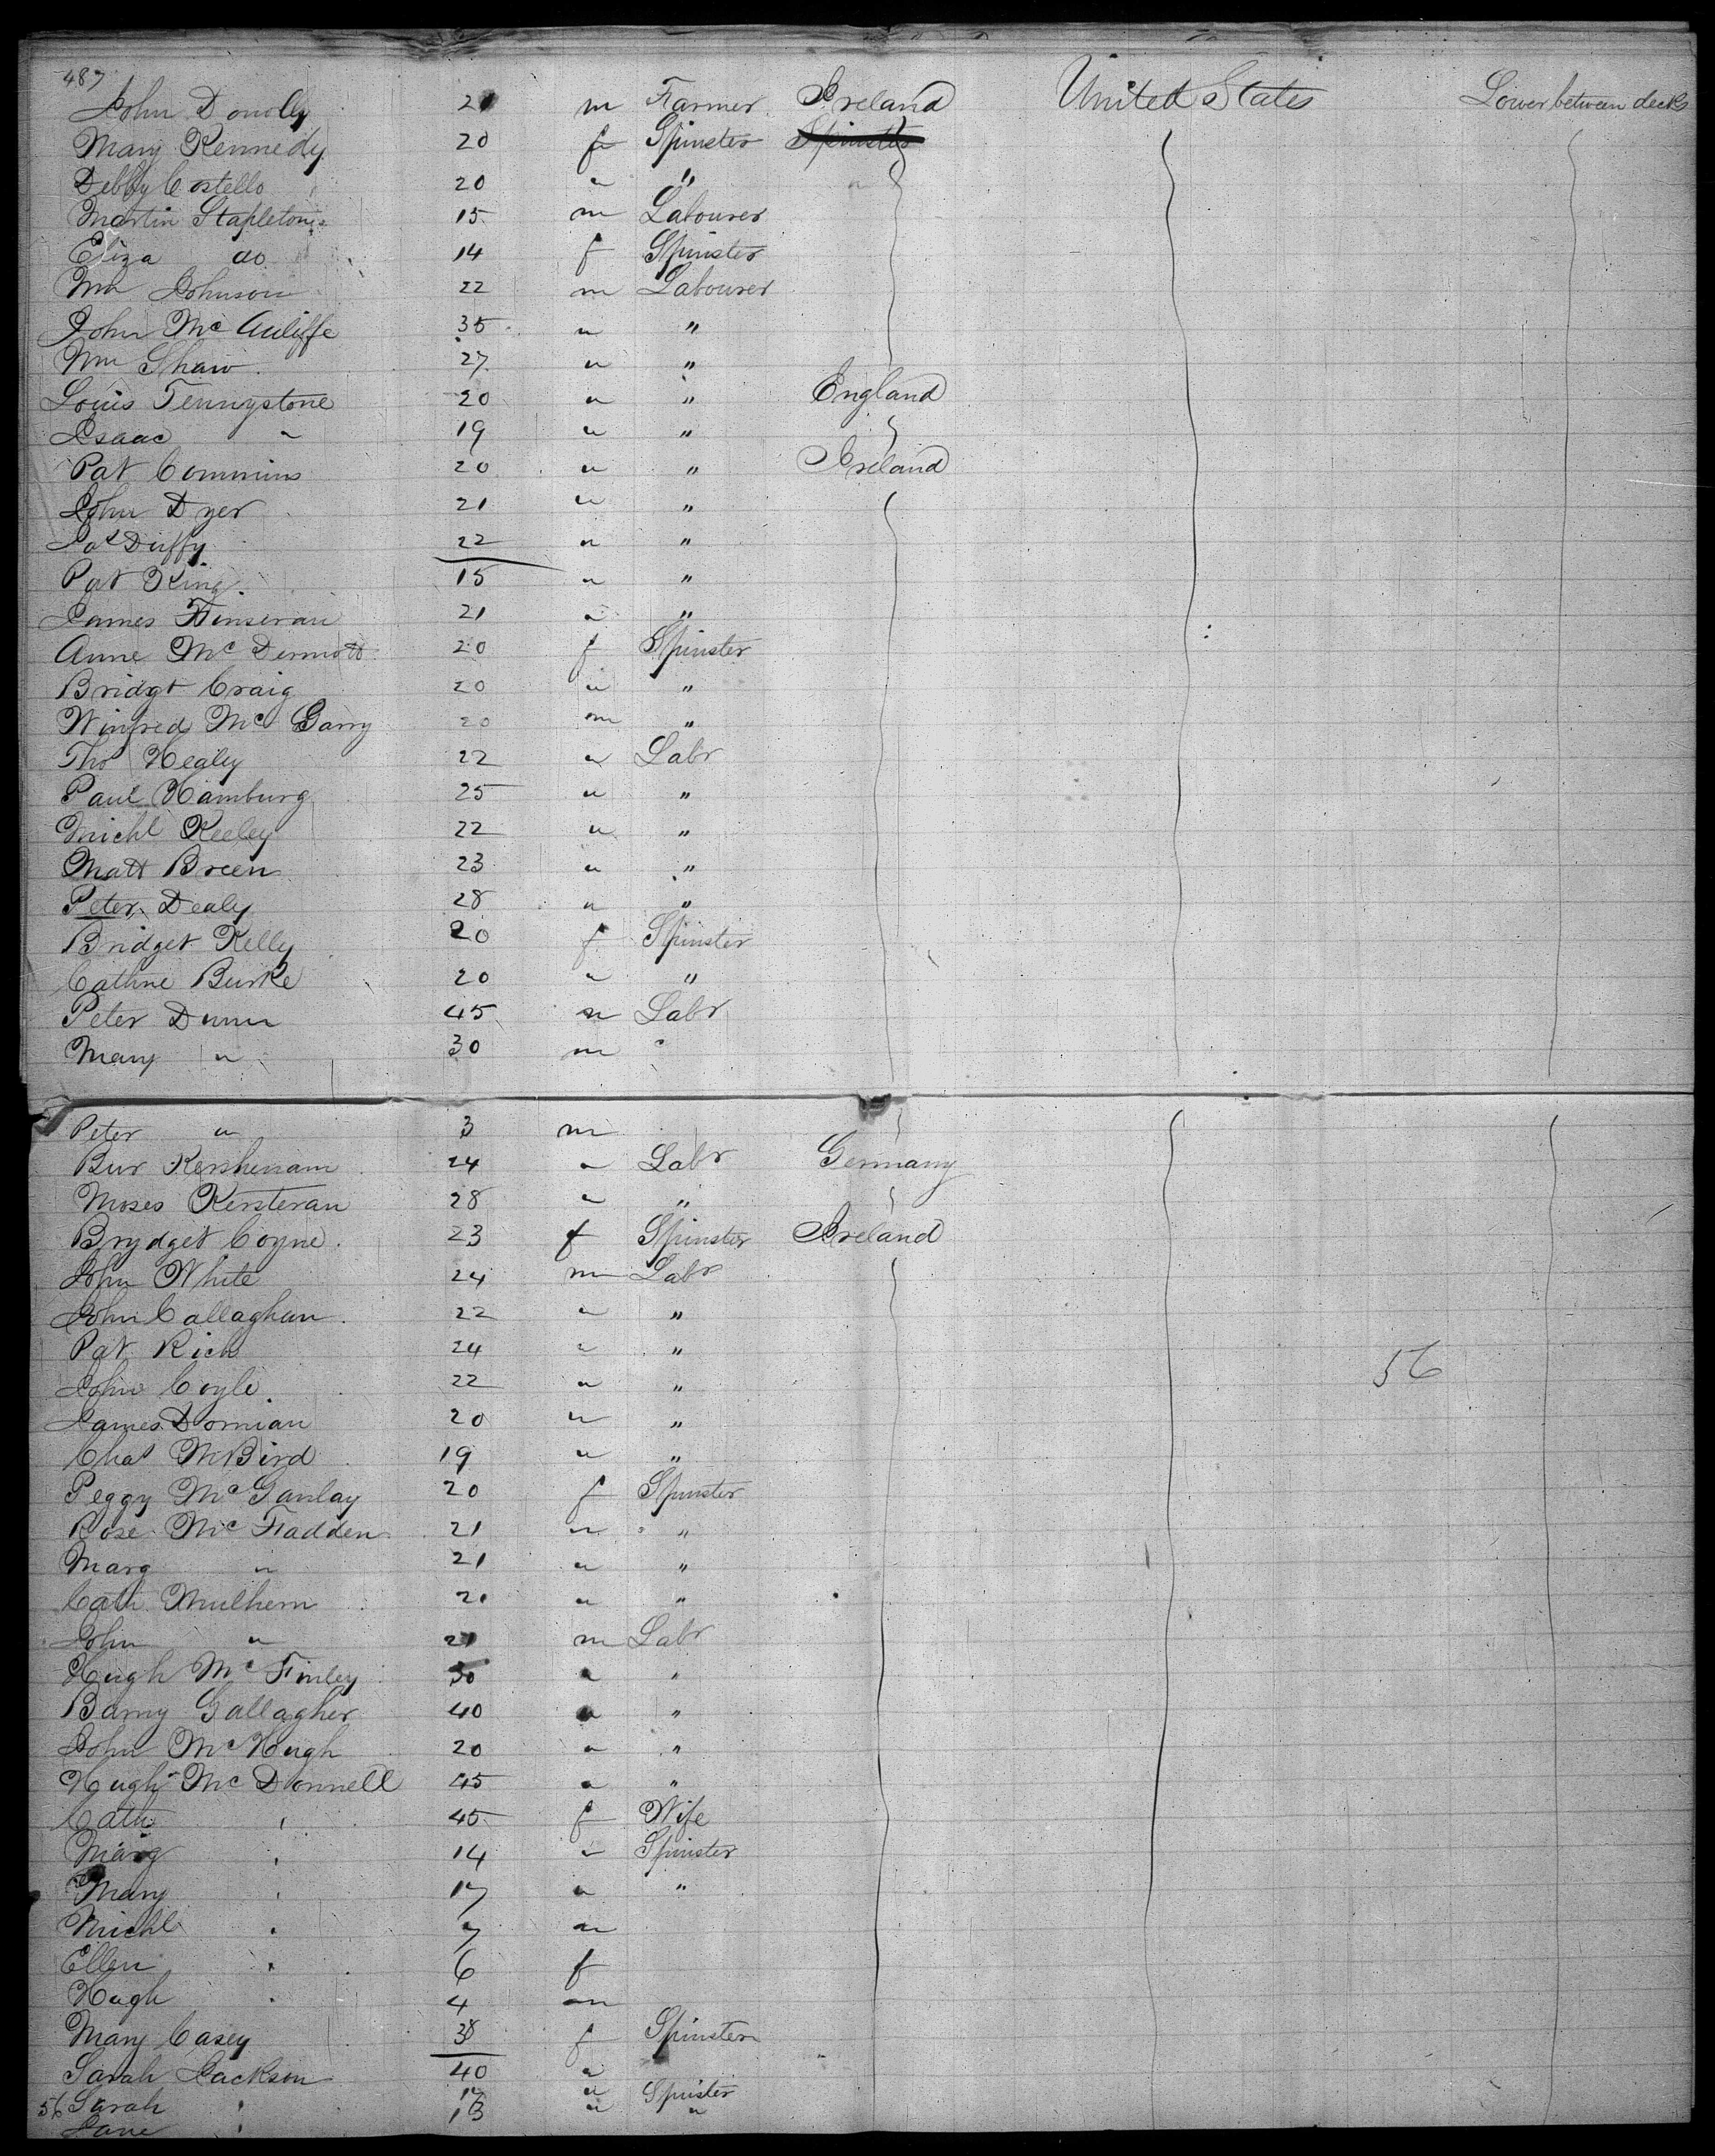 487
John Donolly 21 m Farmer Ireland United States Lower between decks
Mary Kennedy 20 f Spinster Spinster
Debby Costello 20 " "
Martin Stapleton 15 m Labourer
Eliza do 14 f Spinster
Wm Johnson 22 m Labourer
John Mc Auliffe 35 " "
Wm Shaw 27 " "
Louis Tennystone 20 " " England
Isaac " 19 " "
Pat Commins 20 " " Ireland
John Dyer 21 " "
Jas Duffy 22 " "
Pat King 15 " "
James Finseran 21 " "
Anne Mc Dermott 20 f Spinster
Bridgt Craig 20 " "
Winfred Mc Garry 20 m "
Thos Healey 22 " Labr
Paul Hamburg 25 " "
Michl Keeley 22 " "
Matt Breen 23 " "
Peter Dealy 28 " "
Bridget Kelly 20 f Spinster
Cathne Burke 20 " "
Peter Dunn 45 m Labr
Mary " 30 m "
Peter " 3 m
Bur Kershenam 24 " Labr Germany
Moses Kersteran 28 " "
Brydget Coyne 23 f Spinster Ireland
John White 24 m Labr
John Callaghan 22 " "
Pat Rich 24 " " 56
John Coyle 22 " "
James Dornian 20 " "
Chas McBird 19 " "
Peggy Mc Ganlay 20 f Spinster
Rose Mc Fadden 21 " "
Marg " 21 " "
Cath Mulhern 21 " "
John " 21 m Labr
Hugh Mc Finley 30 " "
Barny Gallagher 40 " "
John Mc Hugh 20 " "
Hugh Mc Donnell 45 " "
Cath " 45 f Wife
Marg " 14 " Spinster
Mary " 17 " "
Michl " 7 m
Ellen " 6 f
Hugh " 4 m
Mary Casey 38 f Spinster
Sarah Jackson 40 "
56 Sarah " 17 " Spinster
Jane " 13 " "